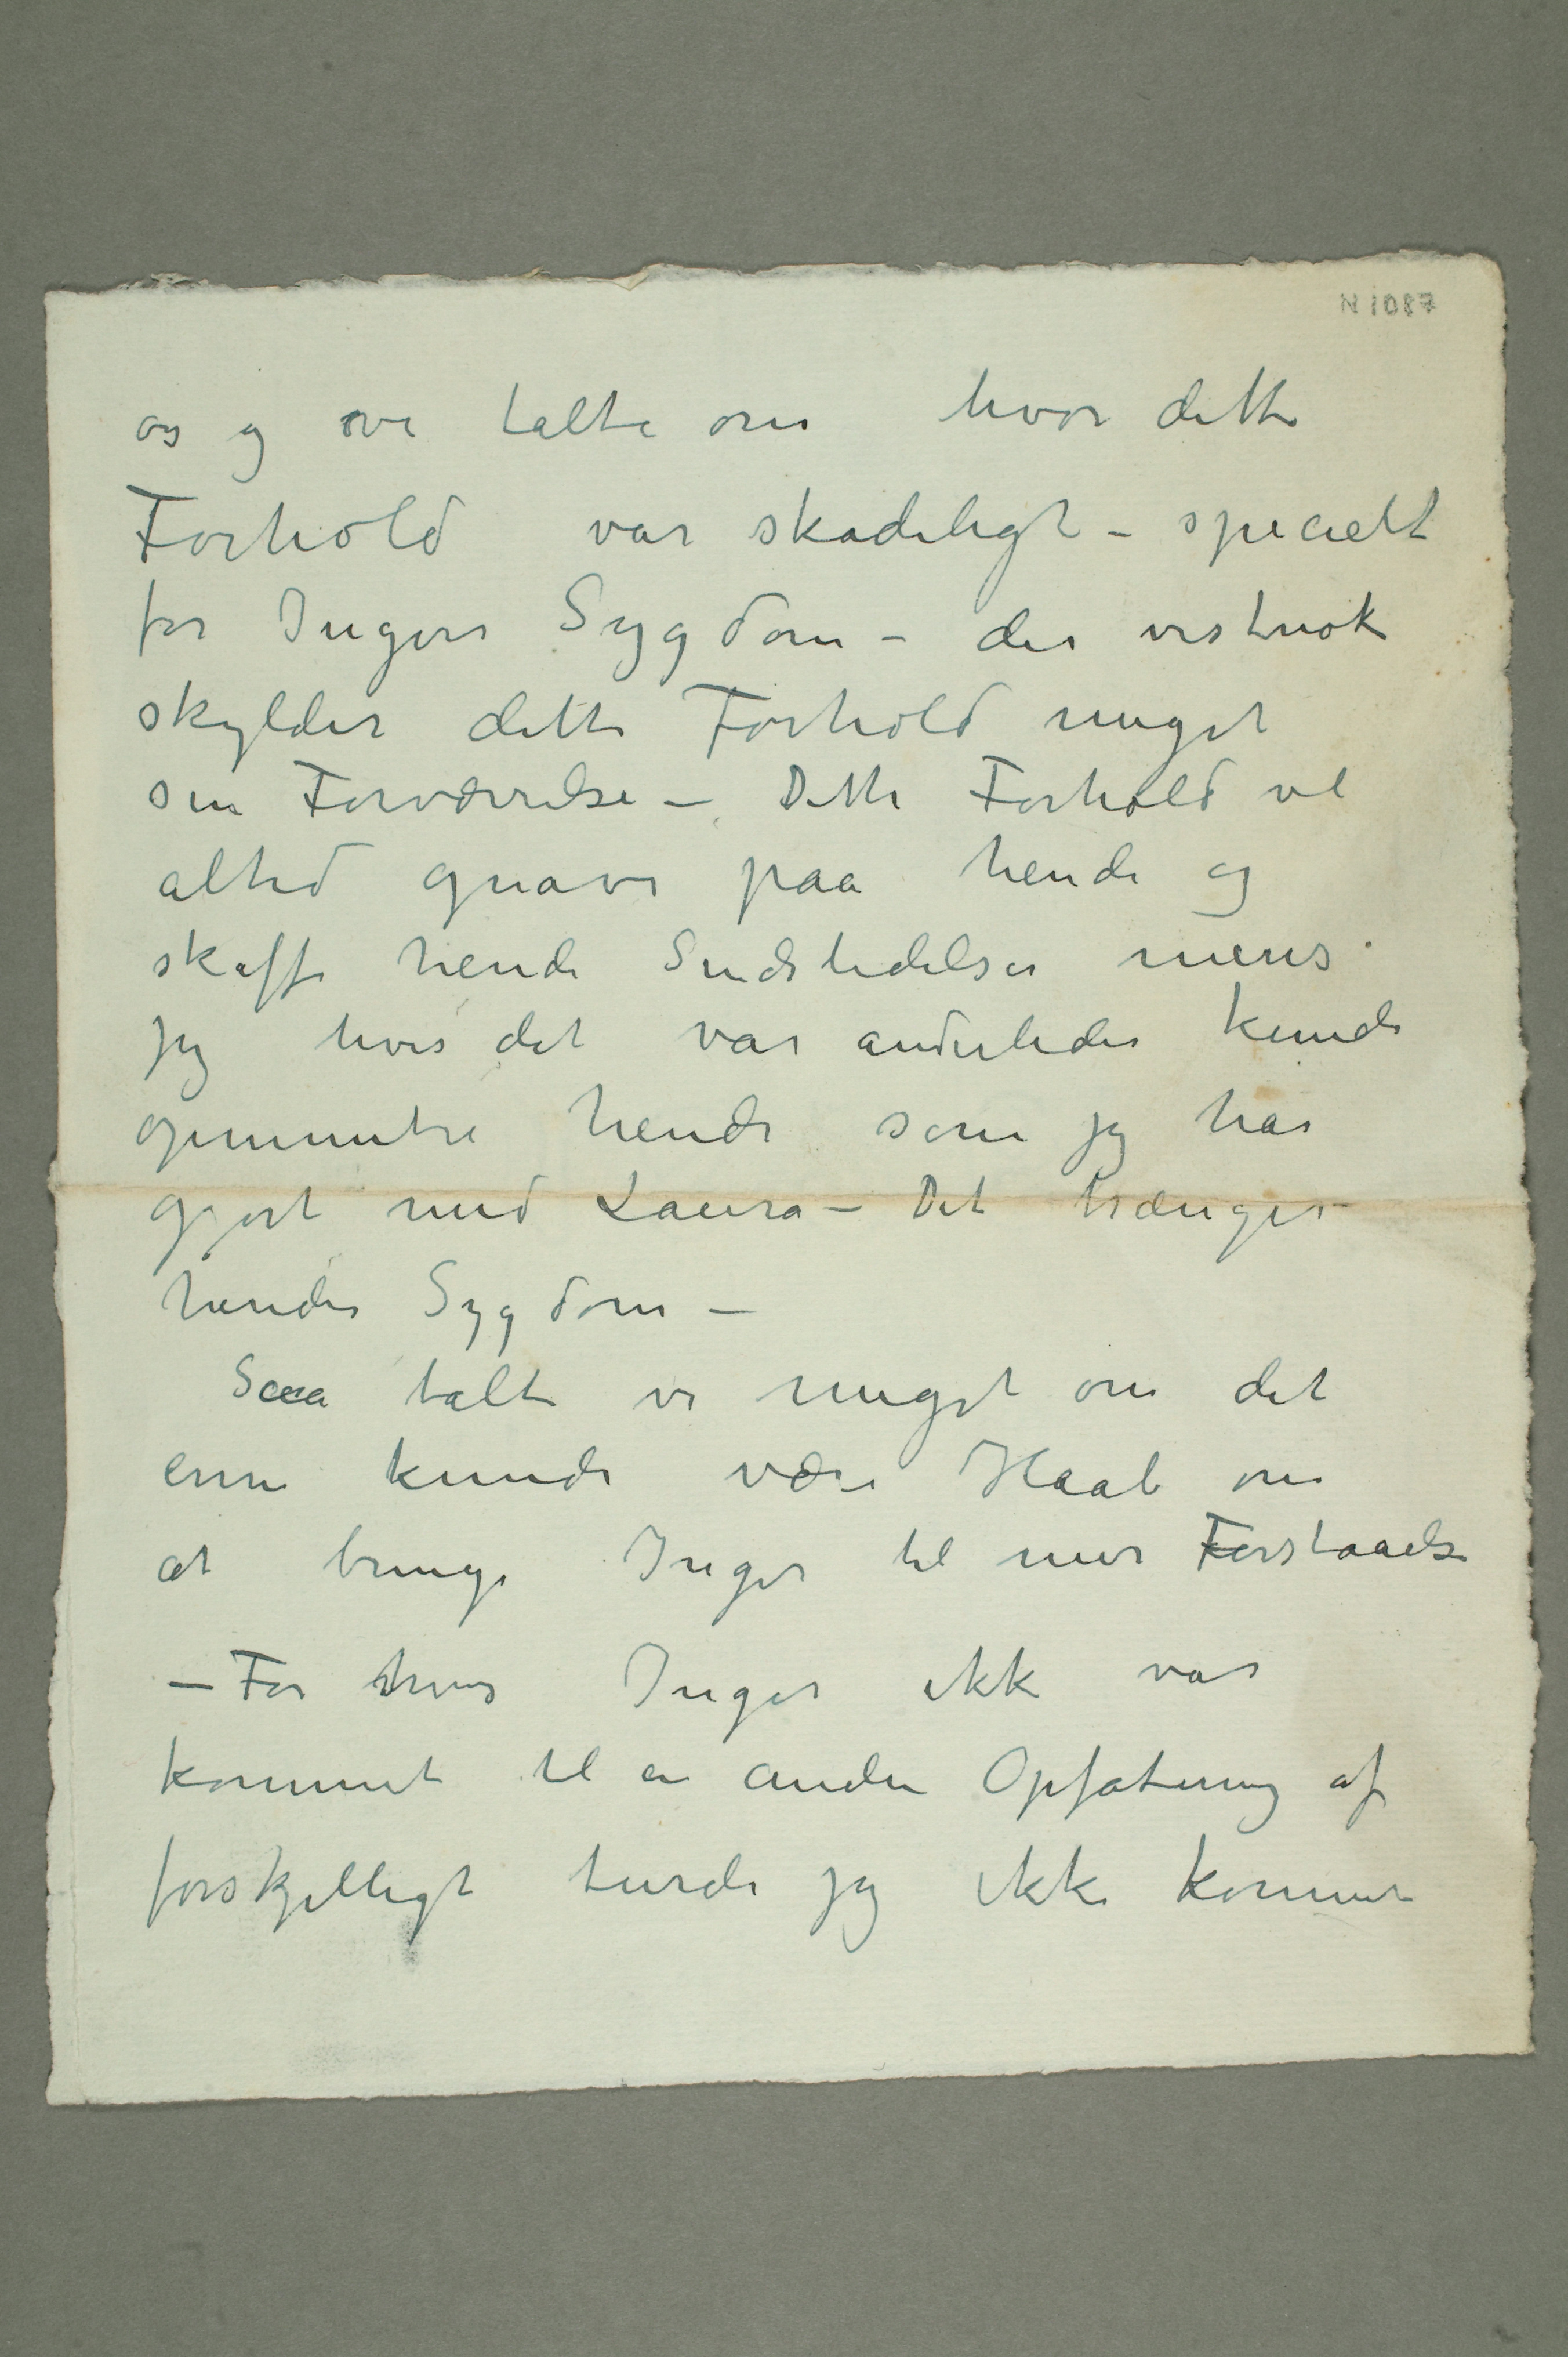 N 1087
os og vi talte om hvor dette
Forhold var skadeligt – specielt
for Ingers Sygdom – der vistnok
skylder dette Forhold meget
sin Forværrelse – Dette Forhold vil
altid gnave paa hende og
skaffe hende Sindslidelser mens
jeg hvis det var anderledes kunde
opmuntre hende som jeg har
gjort med Laura – Det trænger
hendes Sygdom –
Saa talte vi meget om det
enn kunde være Haab om
at bringe Inger til mer Forstaaelse
– For hvis Inger ikke var
kommet til en anden Opfatning af
forskjelligt turde jeg ikke komme